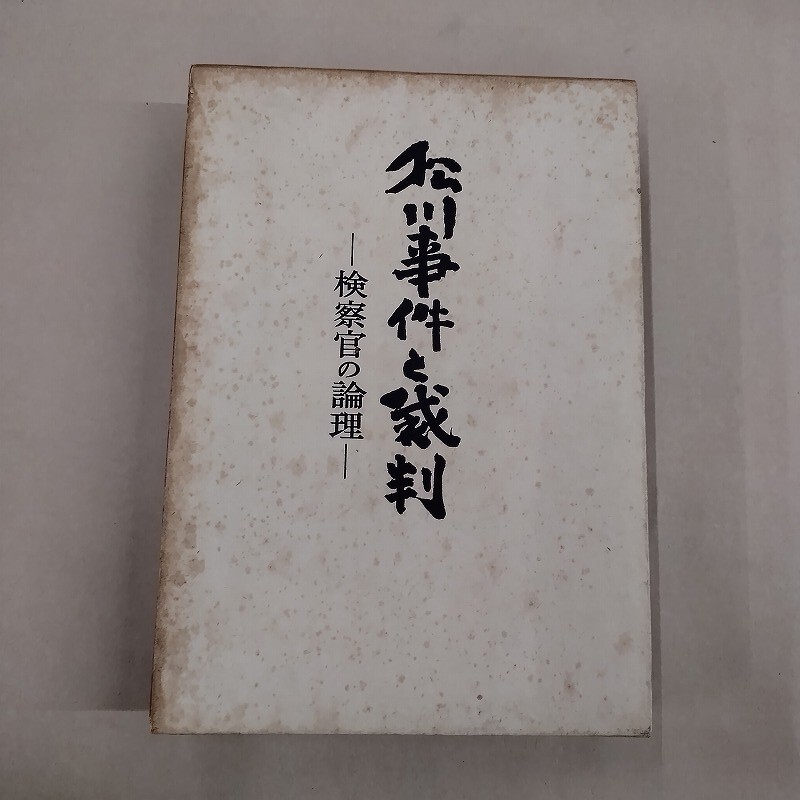 松川事件と裁判
―検察官の論理―